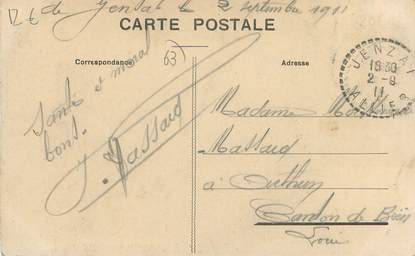 12 €
de Jenzat le 2 Septembre 1911
CARTE POSTALE
Correspondance
63
Adresse
JENZAT
18 30
2 - 9
11
ALLIER
Santé et moral
bons.
J. Massard
Madame
Massard
à
Canton de
Loire